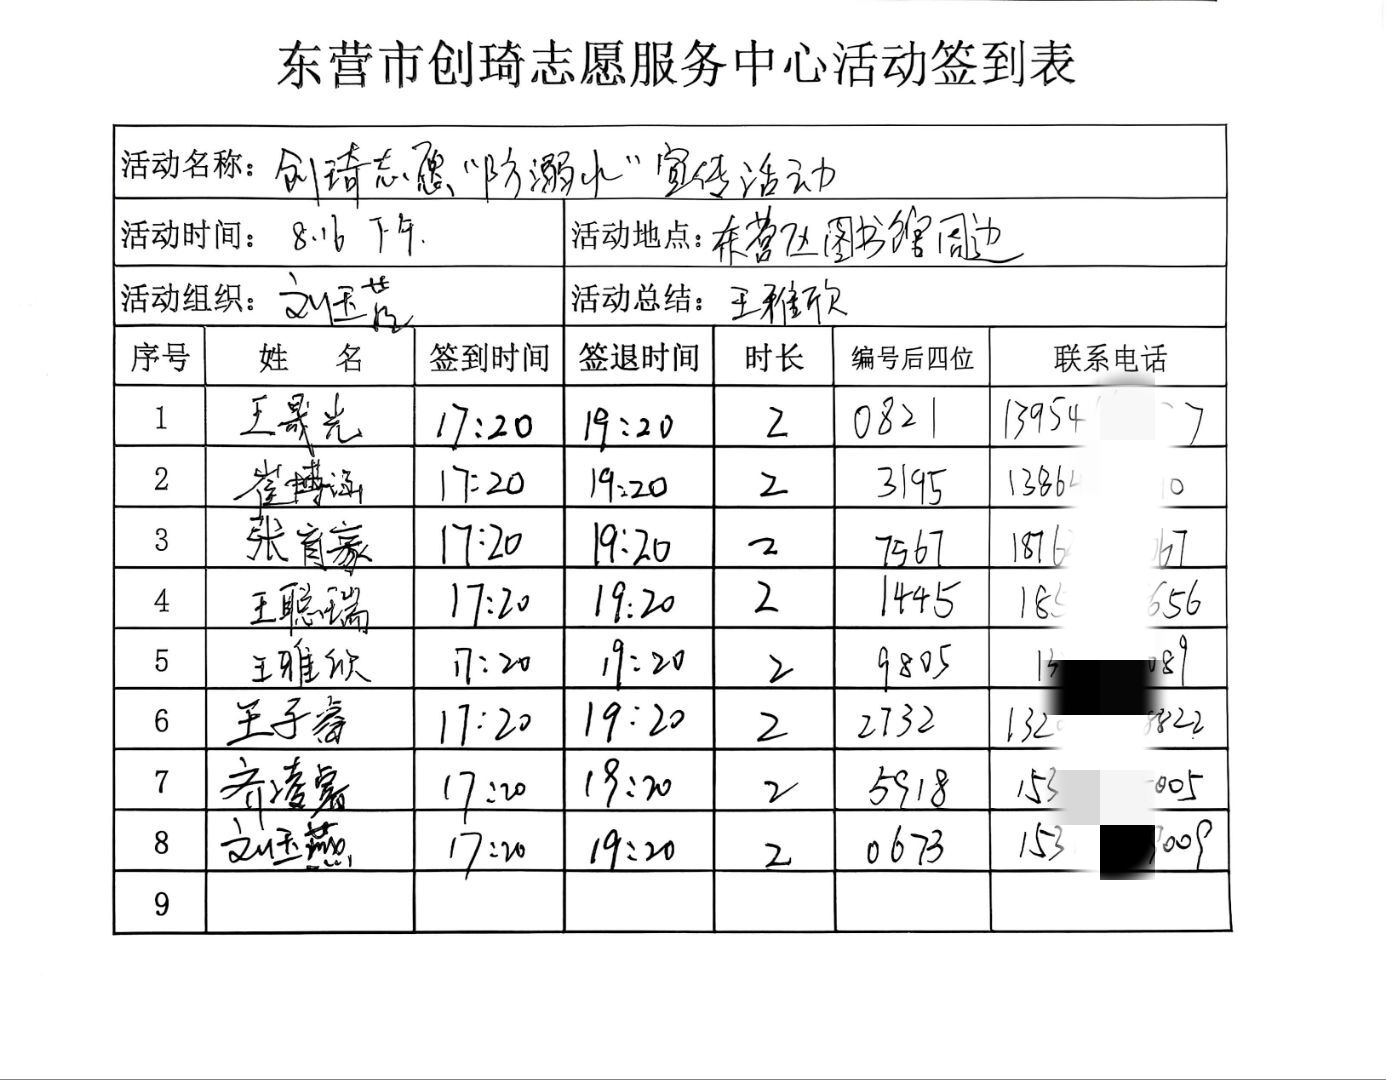 东营市创琦志愿服务中心活动签到表
活动名称：创琦志愿“防溺水”宣传活动
活动时间：8.16 下午. 活动地点：东营区图书馆周边
活动组织：刘玉燕 活动总结：王雅欣
序号 姓 名 签到时间 签退时间 时长 编号后四位 联系电话
1 王晟光 17:20 19:20 2 0821 13954 7
2 崔博涵 17:20 19:20 2 3195 1386 10
3 张育豪 17:20 19:20 2 7567 1876 67
4 王聪瑞 17:20 19:20 2 1445 18 656
5 王雅欣 17:20 19:20 2 9805 13 089
6 王子睿 17:20 19:20 2 2732 132 8822
7 齐凌睿 17:20 19:20 2 5918 153 005
8 刘玉燕 17:20 19:20 2 0673 153 009
9